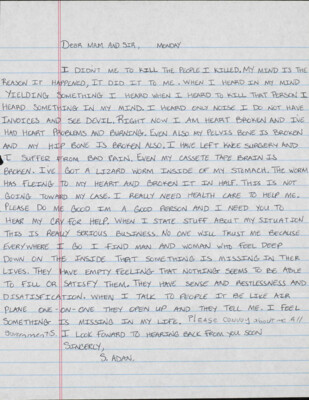 DEAR MAM AND SIR, MONDAY
I DIDN'T ME TO KILL THE PEOPLE I KILLED. MY MIND IS THE
REASON IT HAPPENED, IT DID IT TO ME. WHEN I HEARD IN MY MIND
YIELDING SOMETHING I HEARD WHEN I HEARD TO KILL THAT PORSON I
HEARD SOMETHING IN MY MIND. I HEARD ONLY NOISE I DO NOT HAVE
INVOICES AND SEE DEVIL. RIGHT NOW I AM HEART BROKEN AND I'VE
HAD HEART PROBLEMS AND BURNING. EVEN ALSO MY PELVISS BONE IS BROKEN
AND MY HIP BONE IS BROKEN ALSO. I HAVE LEFT KNEE SURGERY AND
I SUFFER FROM BAD PAIN. EVEN MY CASSETE TAPE BRAIN IS
BROKEN. I'VE GOT A LIZARD WORM INSIDE OF MY STOMACH. THE WORM
HAS FLEING TO MY HEART AND BROKEN IT IN HALF. THIS IS NOT
GOING TOWARD MY CASE. I REALLY NEED HEALTH CARE TO HELP ME.
PLEASE DO ME GOOD I'M A GOOD PERSON AND I NEED YOU TO
HEAR MY CRY FOR HELP. WHEN I STATE STUFF ABOUT MY SITUATION
THIS IS REALLY SERIOUS BUSINESS. NO ONE WILL TRUST ME BECAUSE
EVERYWHERE I GO I FIND MAN AND WOMAN WHO FEEL DEEP
DOWN ON THE INSIDE THAT SOMETHING IS MISSING IN THER
LIVES. THEY HAVE EMPTY FEELING THAT NOTHING SEEMS TO BE ABLE
TO FILL OR SATISFY THEM. THEY HAVE SENSE AND RESTLESSNESS AND
DISATISFICATION. WHEN I TALK TO PEOPLE IT BE LIKE AIR
PLANE ONE-ON-ONE THEY OPEN UP AND THEY TELL ME. I FEEL
SOMETHING IS MISSING IN MY LIFE. PLEASE about me All
I LOOK FOWARD TO HEARING BACK FROM YOU SOON
SINCERLY,
S. ADAN.